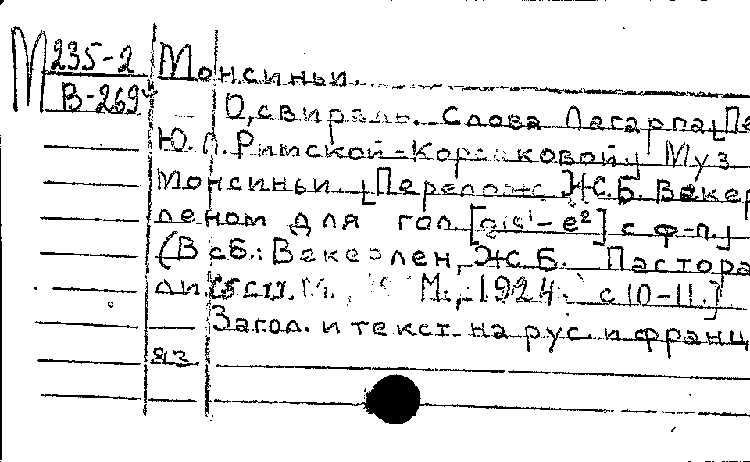 М 235-2 Монсиньи.
В-269
О, свирель. Слова Лагарпа [Пе
Ю. Л. Римской-Корсаковой] Муз
Монсиньи. [Перелож. Ж.Б. Векер
леном для гол. [ – e²] с ф-п.]
(В сб.: Векерлен, Ж.Б. Пастора
ли. М., 1924. с 10-11.]
Загол. и текст на рус. и франц
яз.